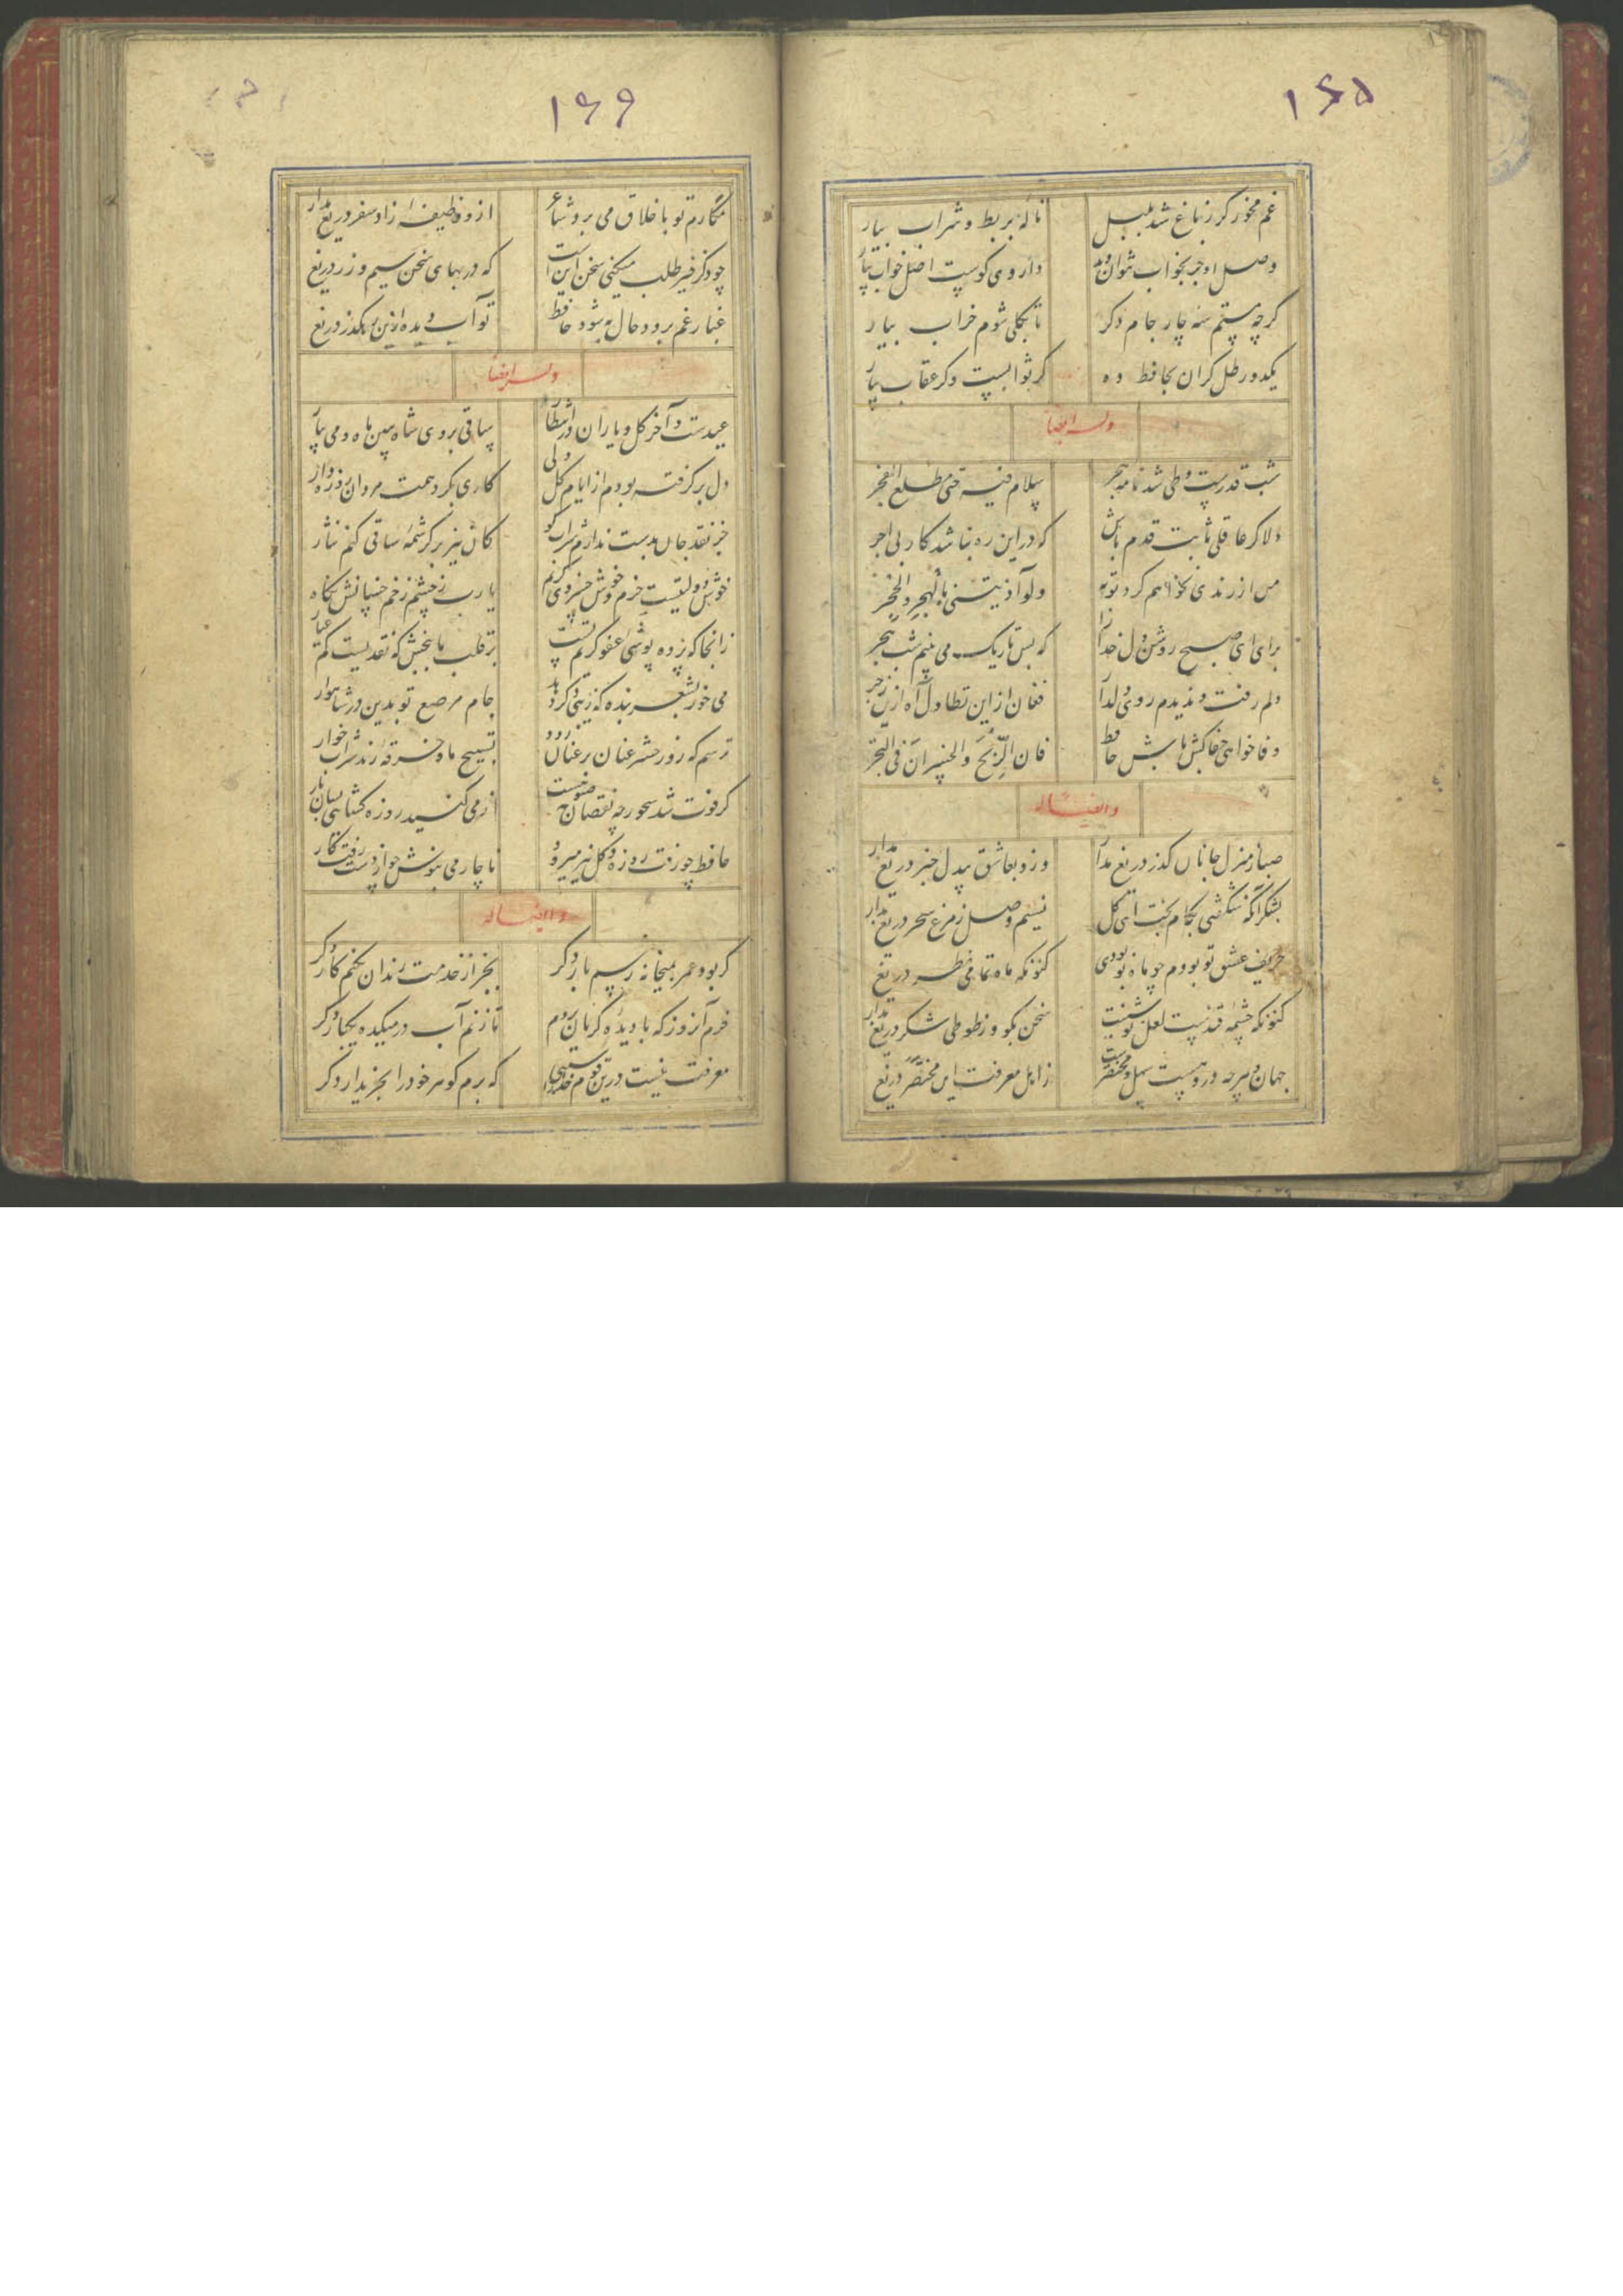 ۱۶۵
غم مخور گر ز باغ شد بلبل نالهٔ بربط و شراب بیار
وصل او جز بخواب نتوان دید داروی کوست اصل خواب بیار
گرچه مستم سه چار جام دگر تا بکلی شوم خراب بیار
یکدو رطل گران بحافظ ده گر ثوابست و گر عقاب بیار
وله ایضا
شب قدرست و طی شد نامه هجر سلام فیه حتی مطلع الفجر
دلا گر عاقلی ثابت قدم باش که در این ره نباشد کار بی اجر
من از رندی نخواهم کرد توبه ولو آذیتنی بالهجر والحجر
برای ای صبح روشن دل خدا را که بس تاریک می بینم شب هجر
دلم رفت و ندیدم روی دلدار فغان از این تطاول آه ازین زجر
وفا خواهی جفاکش باش حافظ فان الربح والخسران فی التجر
وایضا له
صبا ز منزل جانان گذر دریغ مدار وزو بعاشق بیدل خبر دریغ مدار
بشکر آنکه شکفتی بکام بخت ای گل نسیم وصل ز مرغ سحر دریغ مدار
حریف عشق تو بودم چو ماه نو بودی کنونکه ماه تمامی نظر دریغ
کنونکه چشمه قندست لعل نوشینت سخن بگو و ز طوطی شکر دریغ مدار
جهان و هرچه درو هست سهل و مختصرست ز اهل معرفت این مختصر دریغ
۱۶۶
مکارم تو بآفاق می برد شاعر ازو وظیفه زاد سفر دریغ مدار
چو ذکر خیر طلب میکنی سخن اینست که در بهای سخن سیم و زر دریغ
غبار غم برود حال به شود حافظ تو آب دیده ازین رهگذر دریغ
وله ایضا
عیدست و آخر گل و یاران در انتظار ساقی بروی شاه ببین ماه و می بیار
دل برگرفته بودم از ایام گل ولی کاری بکرد همت مردان روزه دار
جز نقد جان بدست ندارم شراب کو کان نیز بر کرشمهٔ ساقی کنم نثار
خوش دولتیست خرم و خوش خسروی کریم یا رب ز چشم زخم خسانش نگاه
زانجا که پرده پوشی عفو کریم تست بر قلب ما ببخش که نقدیست کم عیار
می خور بشعر بنده که زیبی دگر دهد جام مرصع تو بدین در شاهوار
ترسم که روز حشر عنان بر عنان رود تسبیح ما و خرقه رند شراب خوار
گر فوت شد سحور چه نقصان صبوح هست از می کنند روزه گشا بی سان یار
حافظ چو رفت روزه و گل نیز میرود ناچار می بنوش چو از دست رفت کار
وایضا له
گر بود عمر بمیخانه رسم بار دگر بجز از خدمت رندان نکنم کار دگر
خرم آنروز که با دیده گریان بروم تا زنم آب در میکده یکبار دگر
معرفت نیست درین قوم خدایا سببی که برم گوهر خود را بخریدار دگر